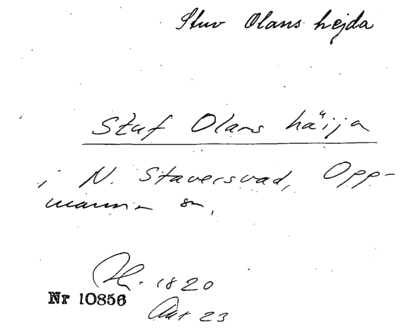 Stuv Olans hejda
Stuf Olans häija
i N. Staversvad, Opp-
manna sn.
1820
Nr 10856
23